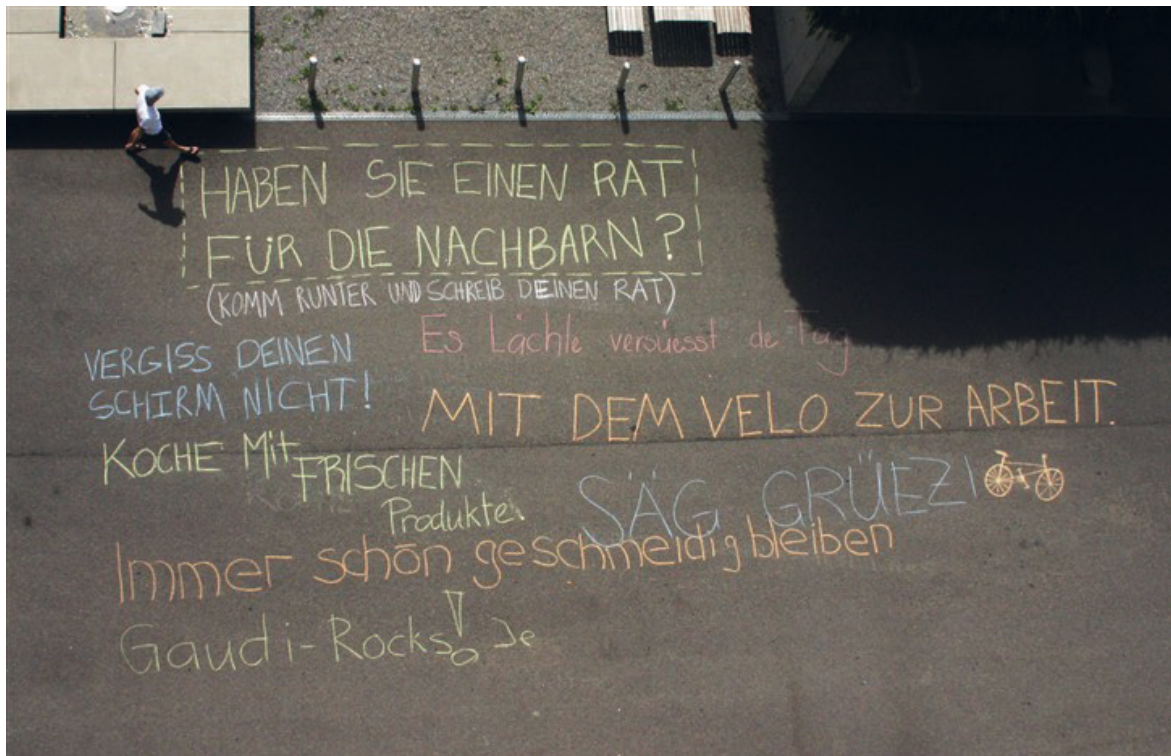 HABEN SIE EINEN RAT
FÜR DIE NACHBARN?
(KOMM RUNTER UND SCHREIB DEINEN RAT)
Es Lächle versüesst de Tag
VERGISS DEINEN
SCHIRM NICHT!
MIT DEM VELO ZUR ARBEIT.
KOCHE Mit
FRISCHEN
Produkte.
SÄG GRÜEZI
Immer schön geschmeidig bleiben
Gaudi-Rocks!